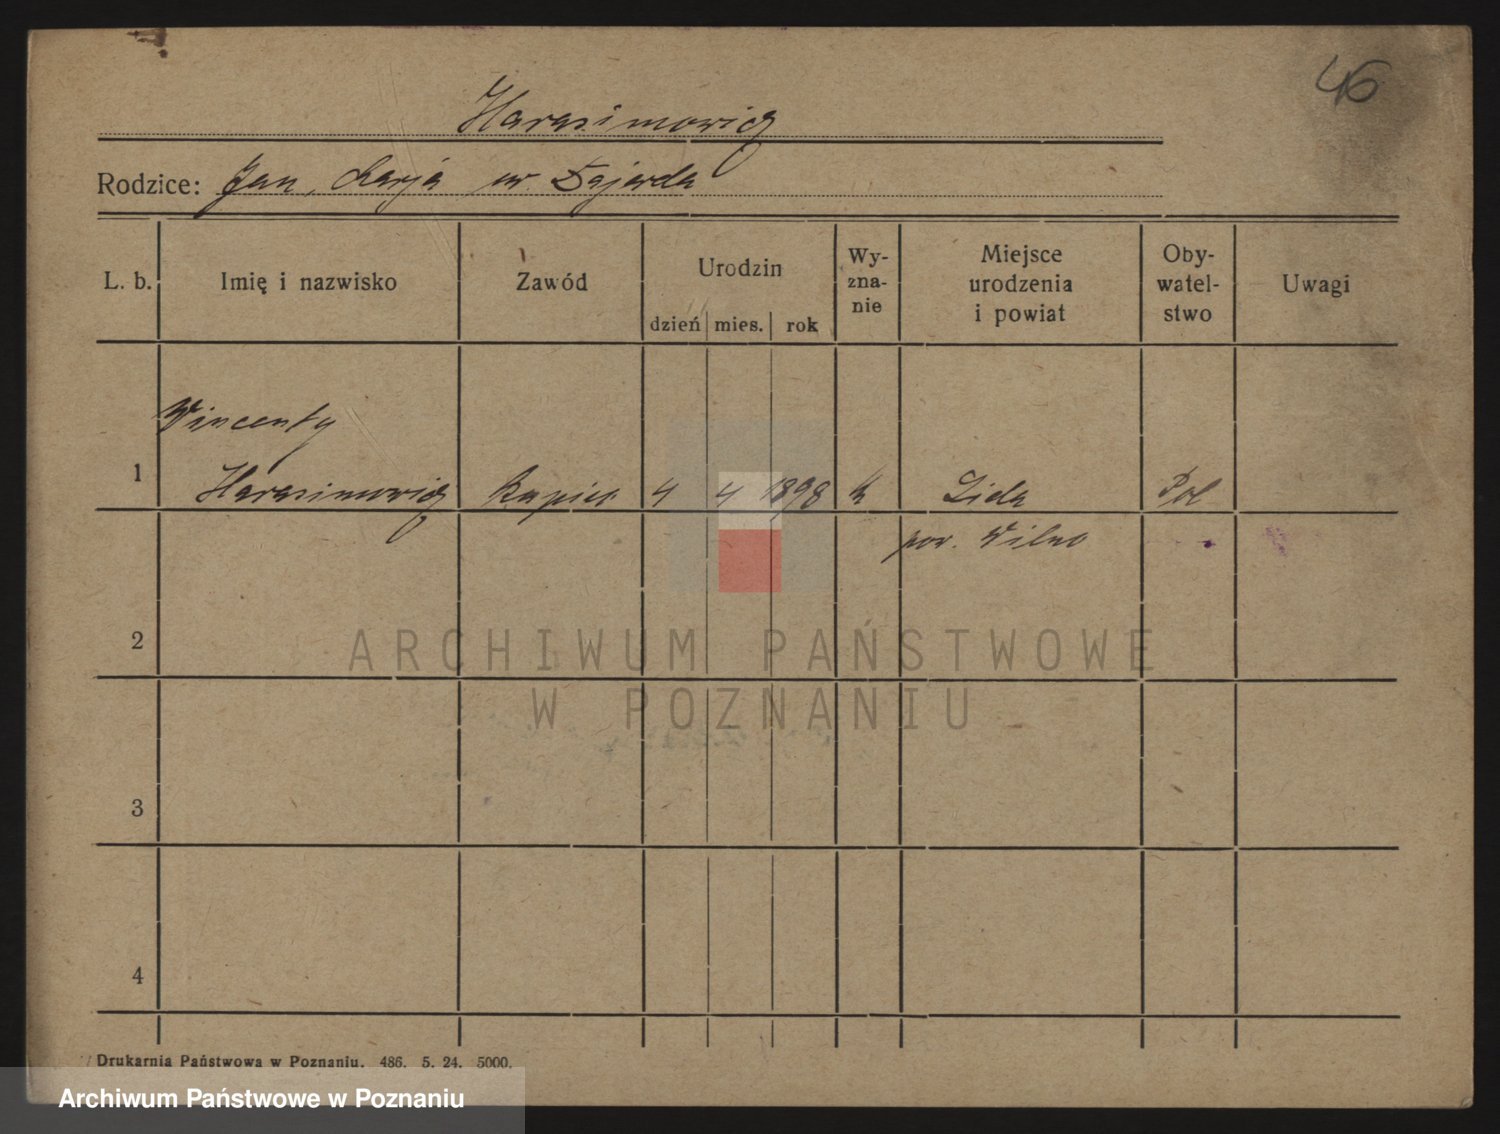 46
Harasimowicz
Rodzice: Jan, Marja ur. Dajerda
L. b. Imię i nazwisko Zawód Urodzin dzień mies. rok Wy-zna-nie Miejsce urodzenia i powiat Oby-watel-stwo Uwagi
Wincenty
1 Harasimowicz Kupiec 4 4 1898 k Lida Pol
pow. Wilno
2
ARCHIWUM PAŃSTWOWE
W POZNANIU
3
4
Drukarnia Państwowa w Poznaniu. 486. 5. 24. 5000.
Archiwum Państwowe w Poznaniu